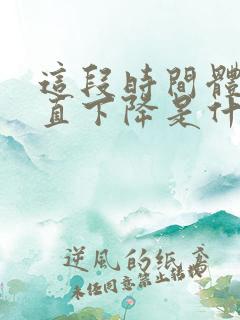 這段時間體
直下降是什
逆風的紙鳶
未經同意禁止轉載